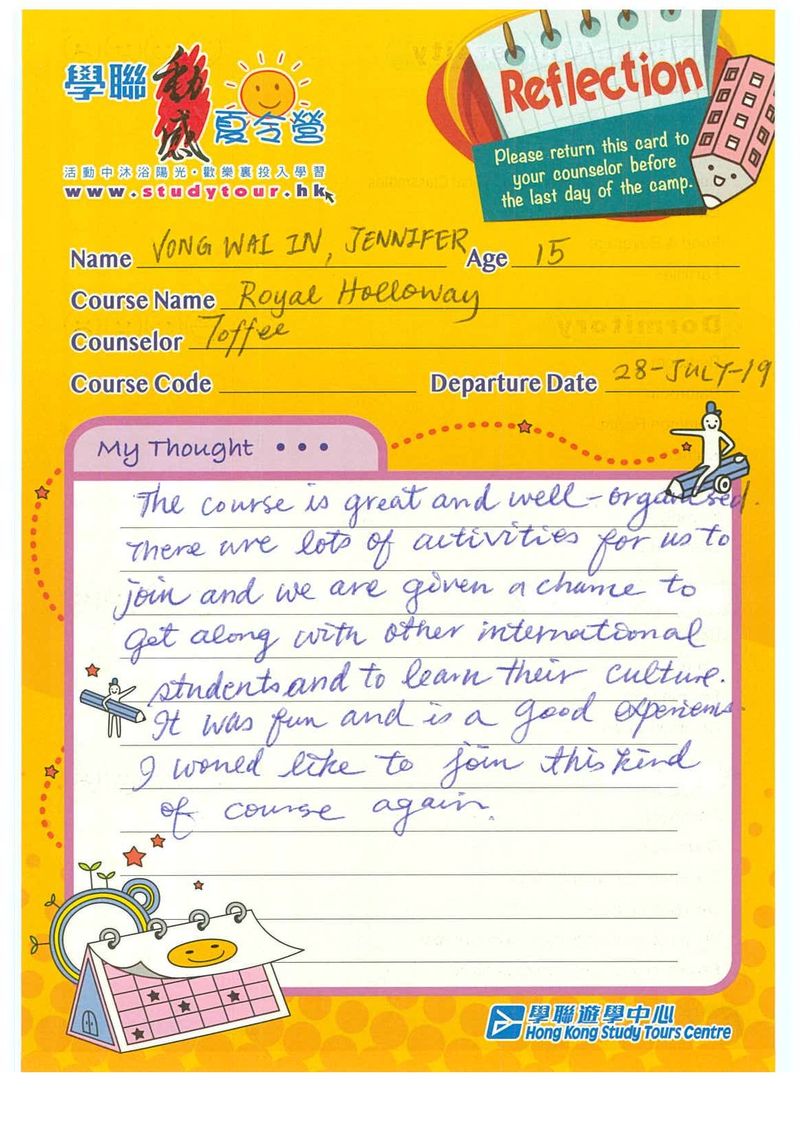 學聯 動感 夏令營
活動中沐浴陽光・歡樂裏投入學習
www.studytour.hk
Reflection
Please return this card to
your counselor before
the last day of the camp.
Name VONG WAI IN, JENNIFER Age 15
Course Name Royal Holloway
Counselor Toffee
Course Code Departure Date 28-JULY-19
My Thought • • •
The course is great and well-organised.
There are lots of activities for us to
join and we are given a chance to
get along with other international
students and to learn their culture.
It was fun and is a good experience.
I would like to join this kind
of course again.
學聯遊學中心
Hong Kong Study Tours Centre
Dormitory